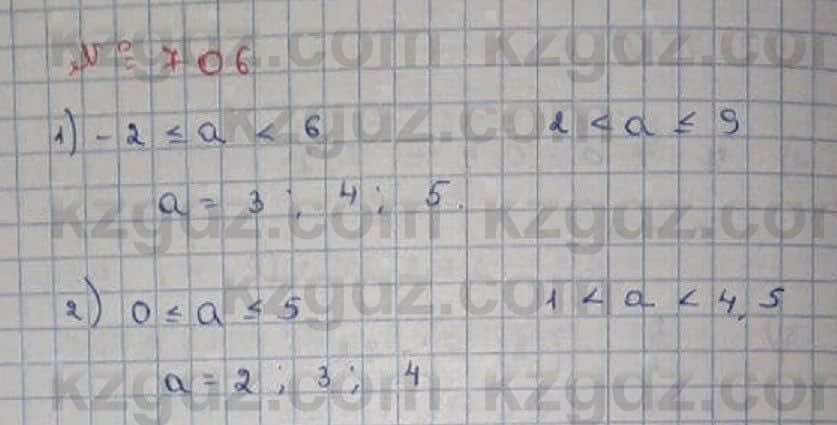 № 706
1) -2 ≤ a < 6 2 < a ≤ 9
a = 3; 4; 5.
2) 0 ≤ a ≤ 5 1 < a < 4,5
a = 2; 3; 4
kzgdz.com kzgdz.com
kzgdz.com
kzgdz.com kzgdz.com
kzgdz.com
kzgdz.com kzgdz.com